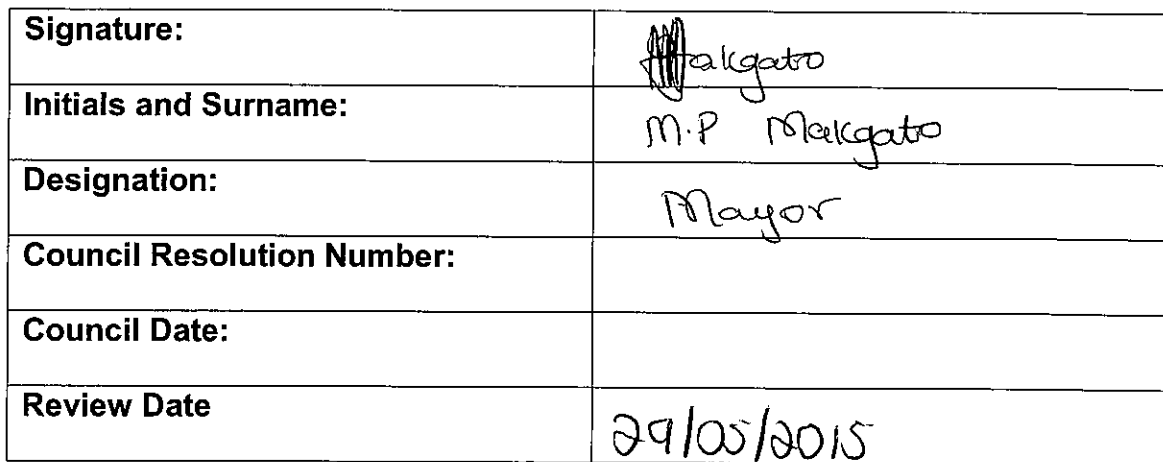 Signature: Makgato
Initials and Surname: M.P Makgato
Designation: Mayor
Council Resolution Number:
Council Date:
Review Date 29/05/2015